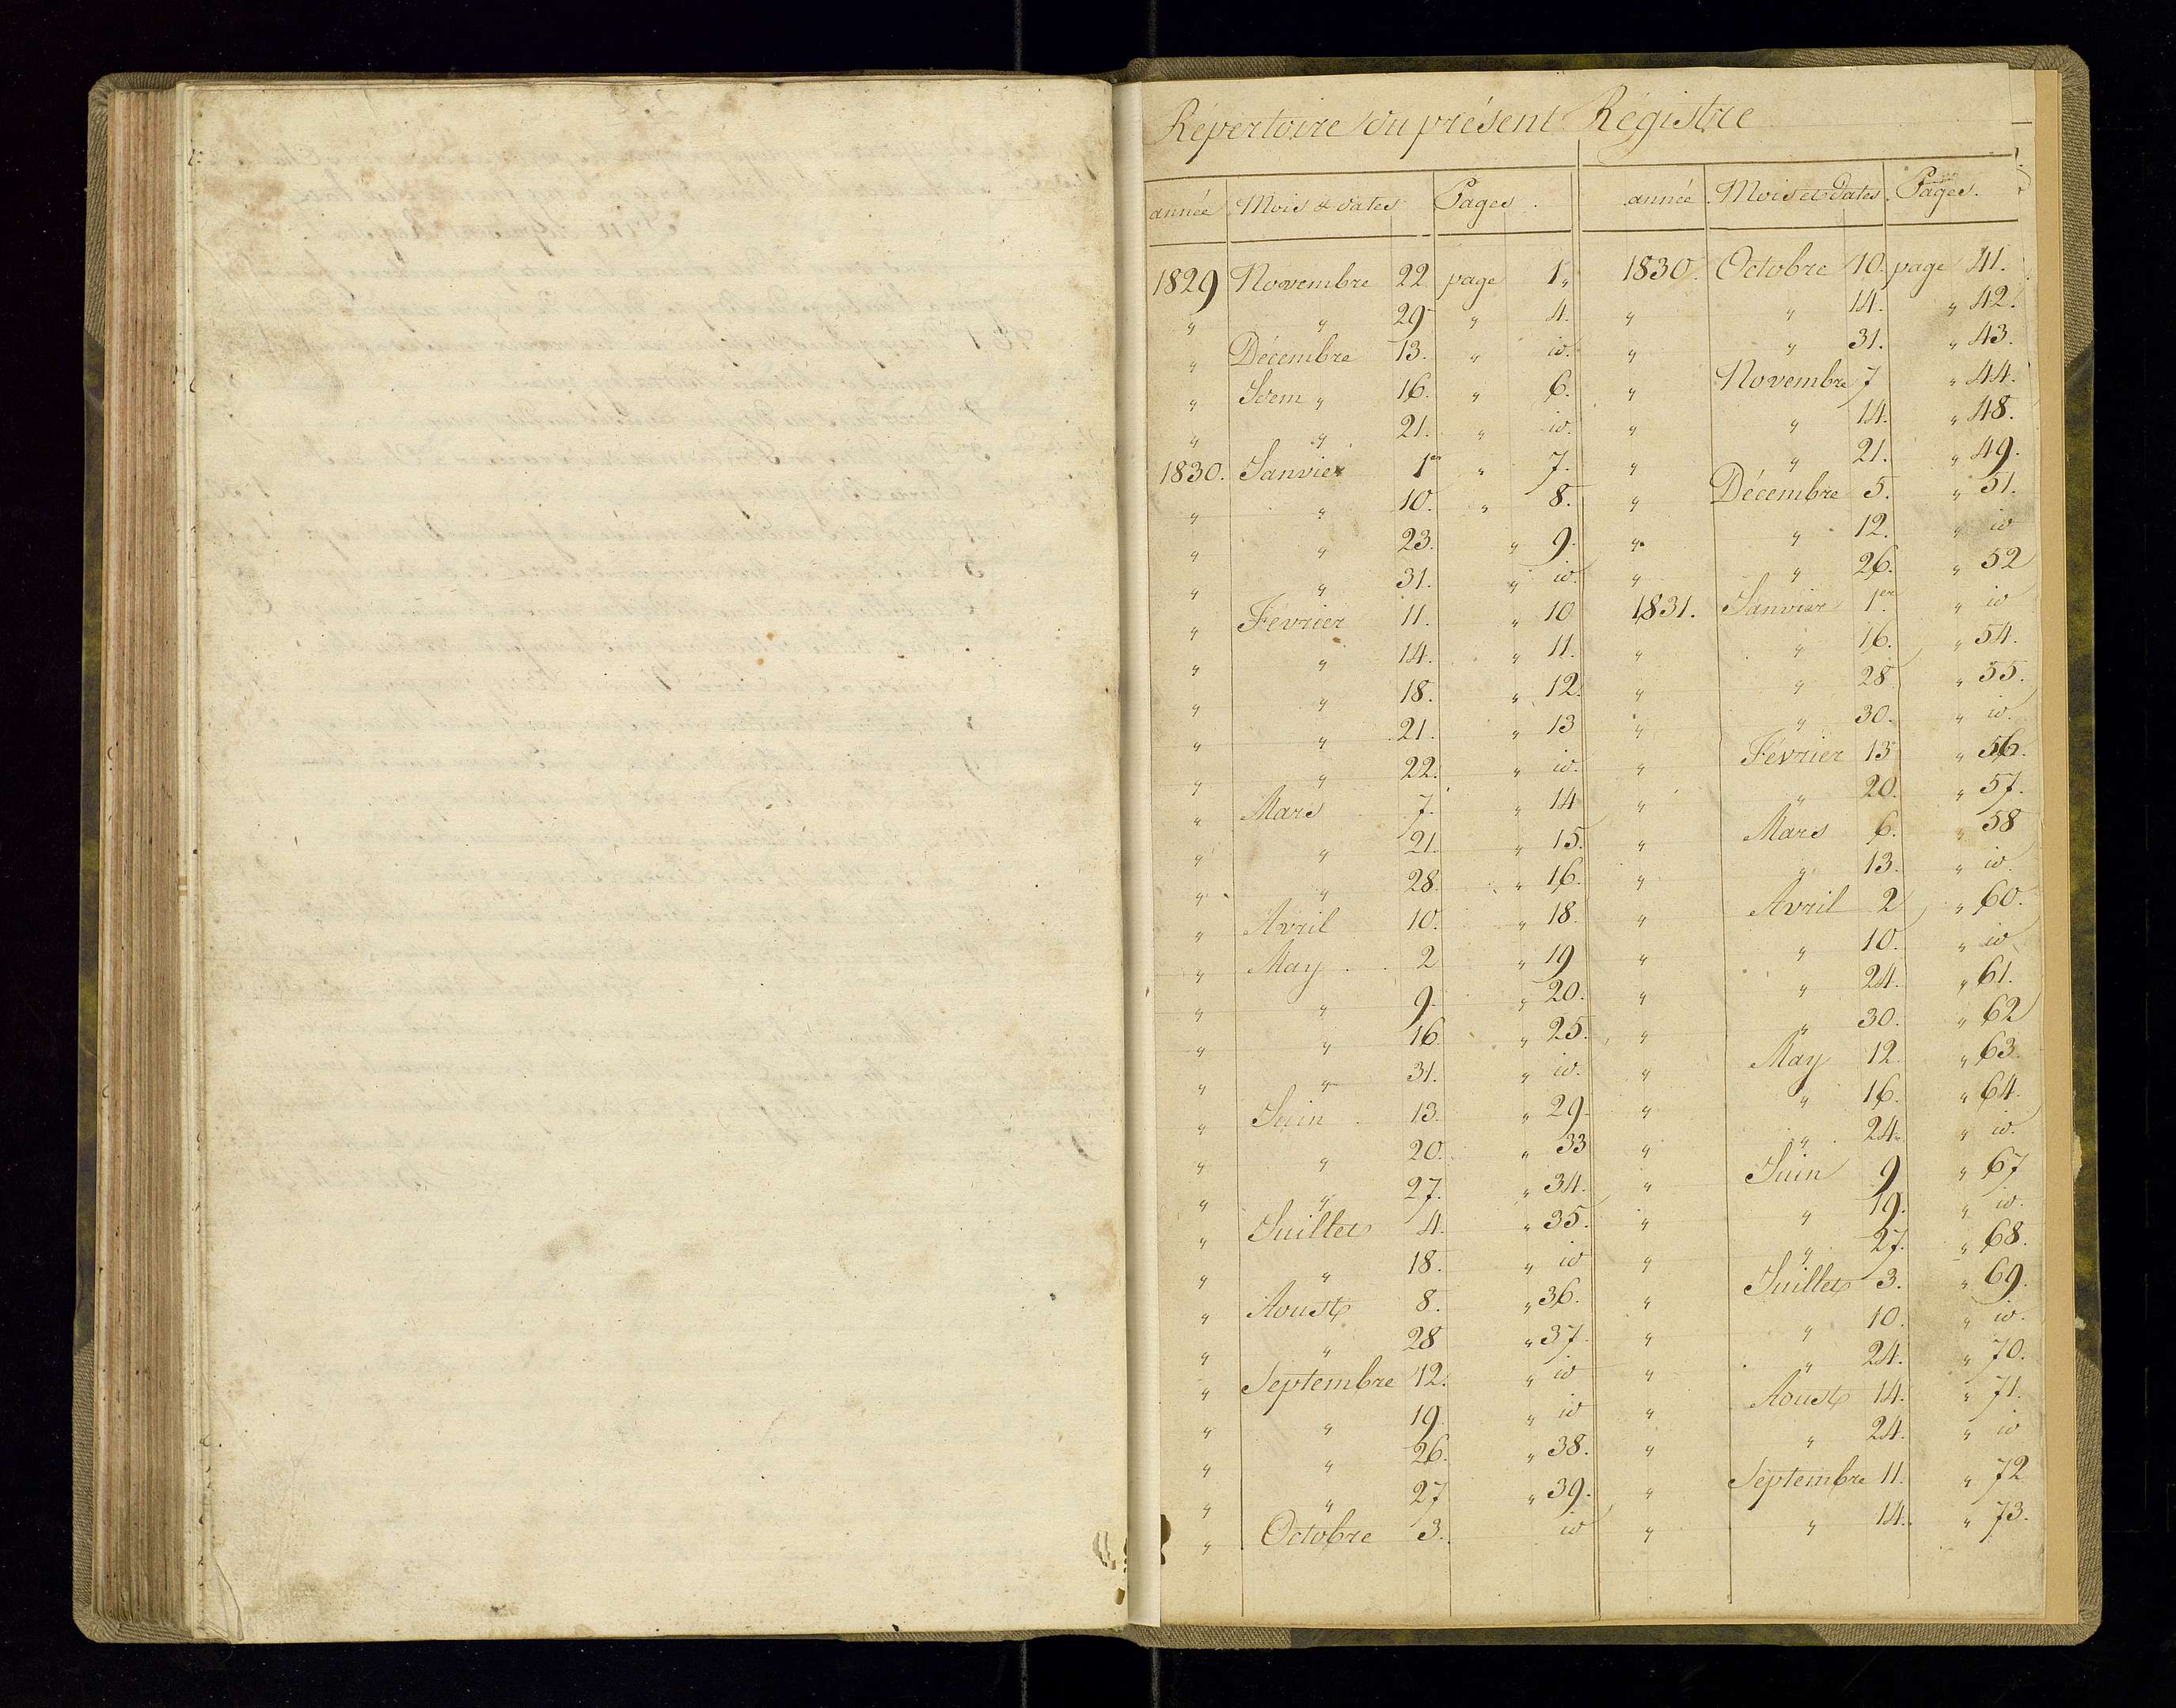 Répertoire du présent Régistre
année Mois & dates Pages. année Mois et dates Pages.
1829 Novembre 22 page 1 „ 1830. Octobre 10. page 41.
„ „ 29 „ 4. „ „ 14. „ 42.
„ Décembre 13. „ id. „ „ 31. „ 43.
„ Idem „ 16. „ 6. „ Novembre 7 „ 44.
„ „ 21. „ id. „ „ 14. „ 48.
1830. Janvier 1er „ 7. „ „ 21. „ 49.
„ „ 10. „ 8. „ Décembre 5. „ 51.
„ „ 23. „ 9. „ „ 12. „ id
„ „ 31. „ id. „ „ 26. „ 52
„ Février 11. „ 10 1831. Janvier 1er. „ id
„ „ 14. „ 11. „ „ 16. „ 54.
„ „ 18. „ 12. „ „ 28 „ 55.
„ „ 21. „ 13 „ „ 30. „ id.
„ „ 22. „ id. „ Février 13 „ 56.
„ Mars 7. „ 14 „ „ 20. „ 57.
„ „ 21. „ 15. „ Mars 6. „ 58
„ „ 28. „ 16. „ „ 13. „ id.
„ Avril 10. „ 18. „ Avril 2 „ 60.
„ May 2 „ 19 „ „ 10. „ id
„ „ 9. „ 20. „ „ 24. „ 61.
„ „ 16 „ 25. „ „ 30. „ 62
„ „ 31. „ id. „ May 12 „ 63.
„ Juin 13. „ 29. „ „ 16. „ 64.
„ „ 20. „ 33 „ „ 24. „ id.
„ „ 27. „ 34. „ Juin 9 „ 67
„ Juillet 4. „ 35. „ „ 19. „ id.
„ „ 18. „ id „ „ 27. „ 68.
„ Aoust 8. „ 36. „ Juillet 3. „ 69.
„ „ 28 „ 37. „ „ 10. „ id.
„ Septembre 12. „ id „ „ 24. „ 70.
„ „ 19. „ id „ Aoust 14. „ 71.
„ „ 26. „ 38. „ „ 24. „ id
„ „ 27 „ 39. „ Septembre 11. „ 72
„ Octobre 3. id „ „ 14. „ 73.